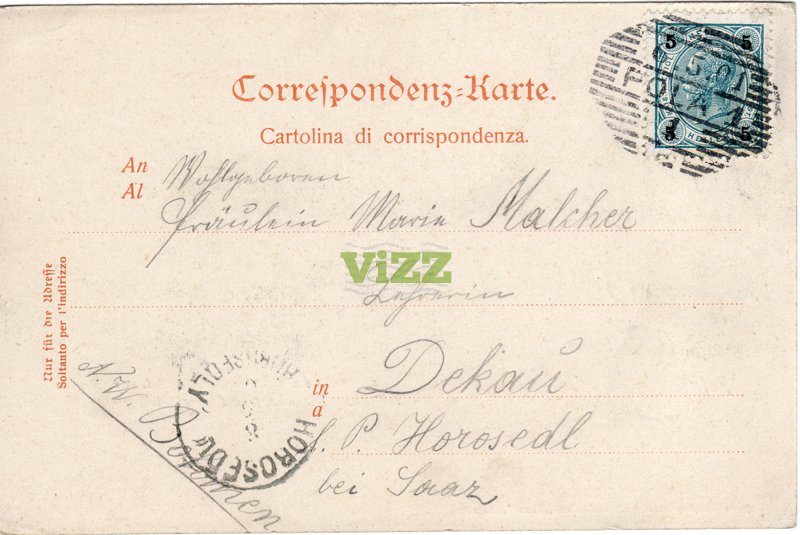 Correspondenz-Karte.
Cartolina di corrispondenza.
An
Al
Wohlgeboren
Fräulein Marie Malcher
ViZZ
Lehrerin
Nur für die Adresse
Soltanto per l'indirizzo
in
a
Dekau
P. Horosedl
bei Saaz
N.W. Böhmen
HOROSEDL
HOROSEDLY
POLA 1
5 5
5 5